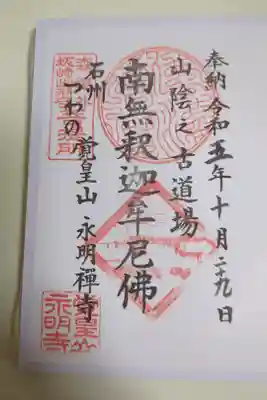 奉納 令和五年十月二十九日
山陰之古道場
南無釈迦牟尼佛
石州
つわの 覚皇山 永明禅寺
覚皇山
永明寺